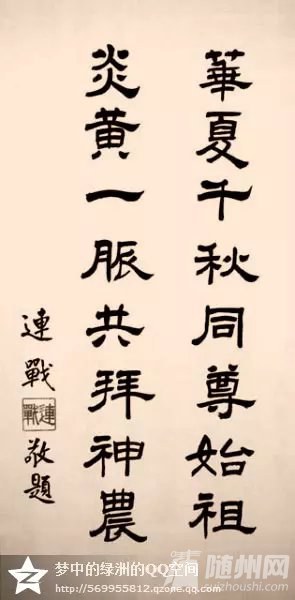 華夏千秋同尊始祖
炎黃一脈共拜神農
連戰
連戰
敬題
梦中的绿洲的QQ空间
http://569955812.qzone.qq.com
随州网
suizhoushi.com